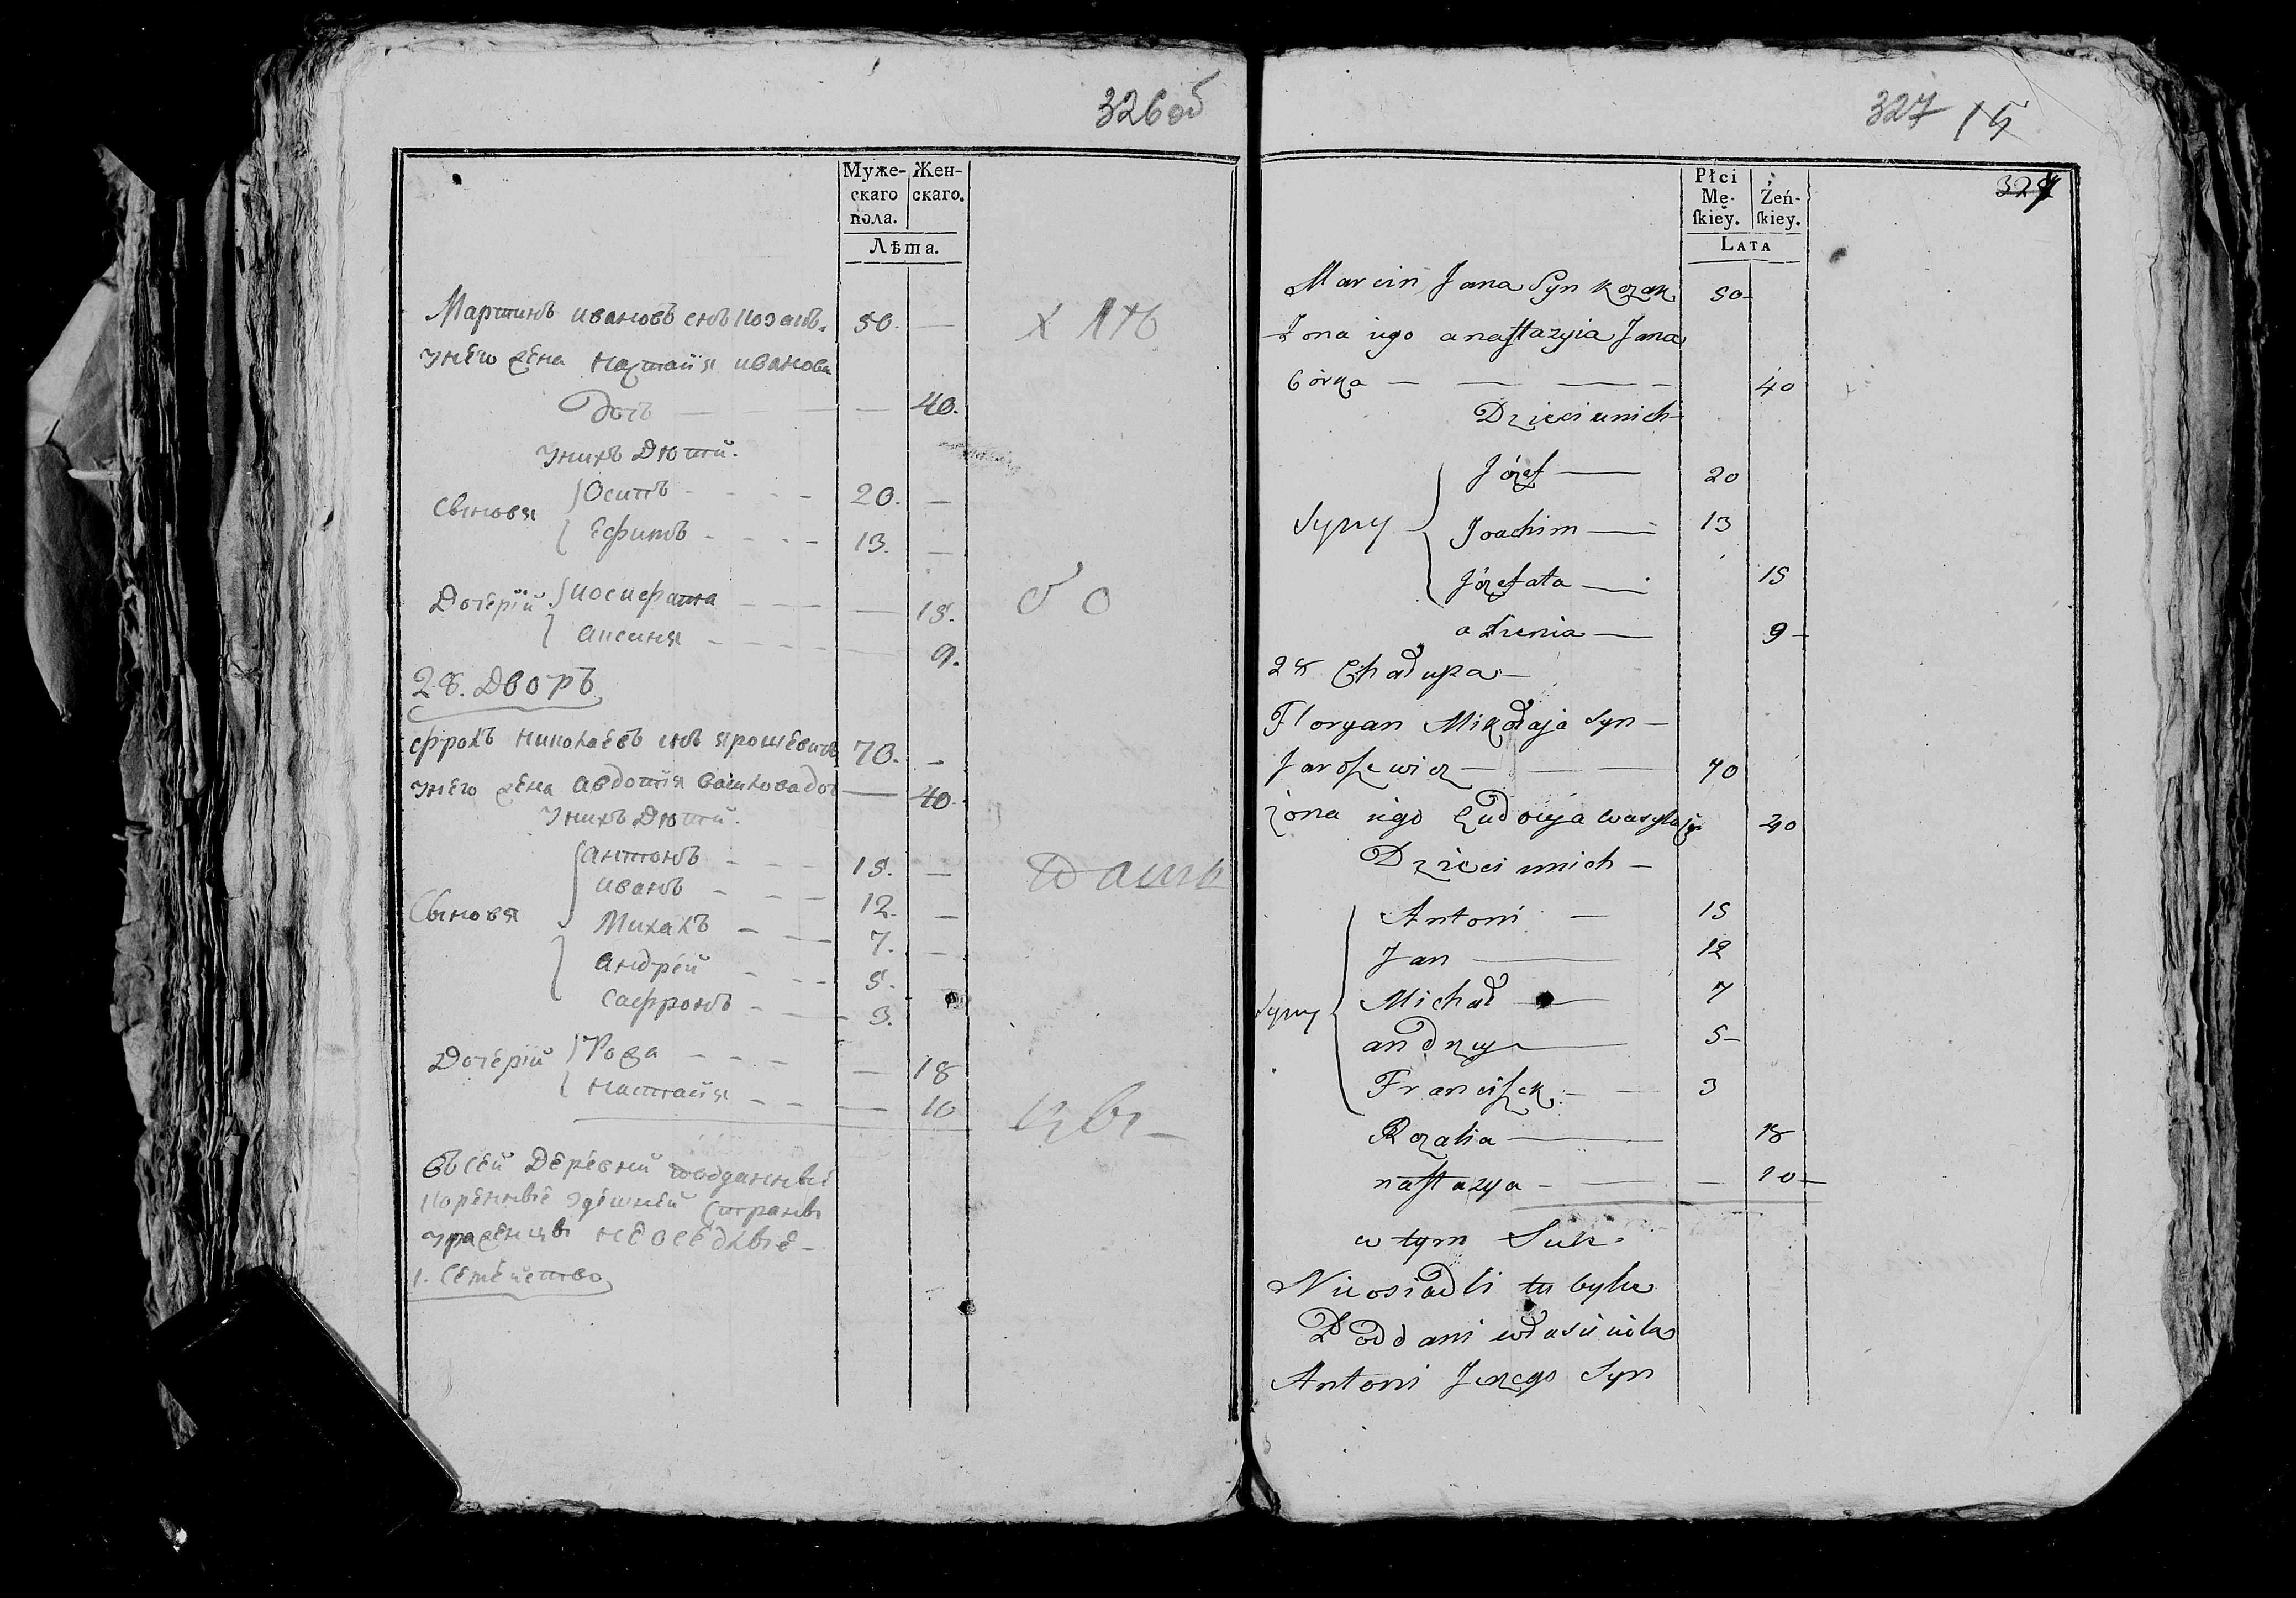 326 об
Муже-
скаго
пола.
Жен-
скаго.
Лѣта.
Мартинъ ивановъ снъ козакъ. 50. —
унего жена настасїя иванова
дочь — 40.
унихъ дѣти.
Сыновя
Осипъ 20. —
Ефимъ 13. —
Дочерїй
иосифата — 15.
аксиня — 9.
28. дворъ
фролъ николаевъ снъ ярошевичъ 70. —
унего жена авдотїя васильова доч — 40.
унихъ дѣти.
Сыновя
антонъ 15. —
иванъ 12. —
Михалъ 7. —
андрей 5. —
Сафронъ 3.
Дочерїй
Роза — 18
настасїя — 10
всей деревни подданныи
коренные здешней страны
уроженцы неоседлые
1. Семейство
327 15
327
Płci
Mę-
ſkiey.
Żeń-
ſkiey.
LATA
Marcin Jana Syn Kozak 50
Żona iego anaſtazyia Jana
Córka — 40
Dzieci unich
Synу
Józef — 20
Joachim — 13
Józefata — 15
axienia — 9
28 Chałupa
Floryan Mikołaja Syn —
Jaroſzewicz — 70
żona iego Eudocyja wasyla 40
Dzieci unich —
Syny
Antoni — 15
Jan — 12
Michał — 7
andrzey — 5
Franciſzek — 3
Rozalia — 18
naſtazya — 10
w tym Siele
Nieosiadli tu byli
Poddani
Antoni Jerzego Syn